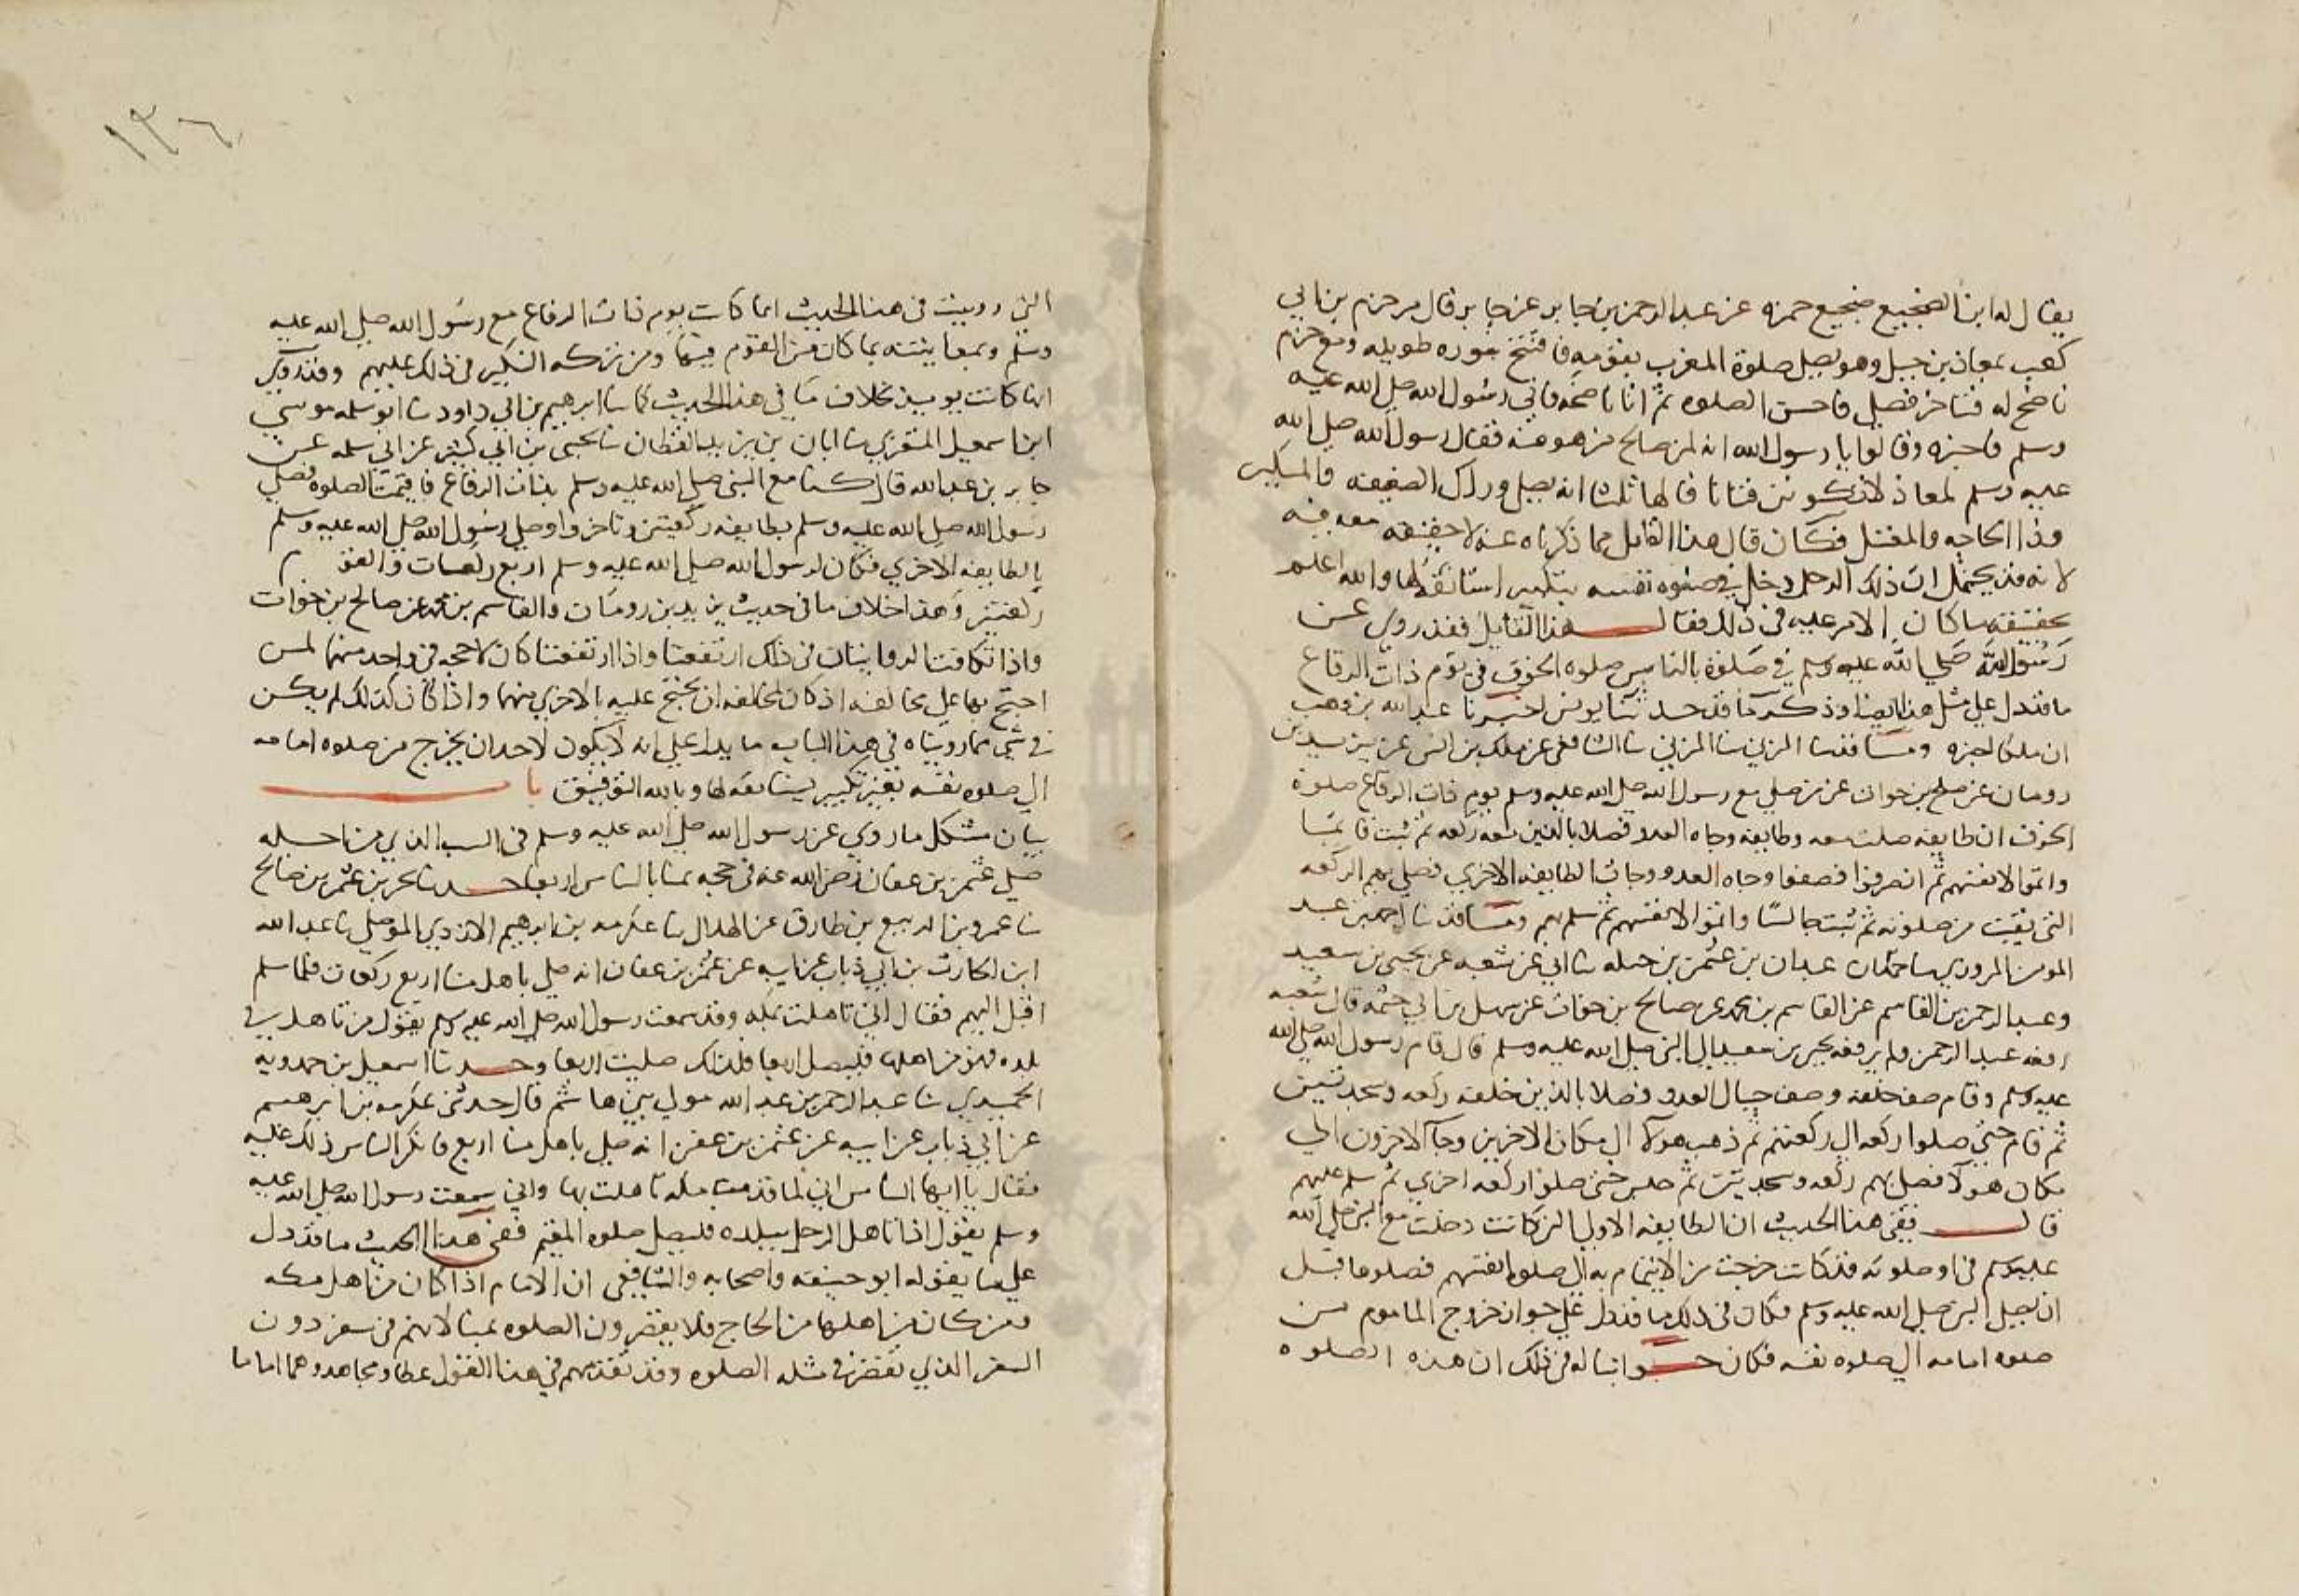 يقال له ابن الضجيع ضجيع حمزه عن عبد الرحمن بن جابر عن جابر قال مر حزم بن ابي
كعب بمعاذ بن جبل وهو يصلي صلوة المغرب بقومه فافتتح بسوره طويله ومع حزم
ناضح له فتاخر فصلي فاحسن الصلوه ثم اتا ناضحه فاتي رسول الله صلي الله عليه
وسلم فاخبره وقالوا يا رسول الله انه لمن صالح من هو منه فقال رسول الله صلي الله
عليه وسلم لمعاذ لا تكونن فتانا قالها ثلثا انه يصلي وراك الضعيف والكبير
وذا الحاجه والمعتل فكان قال هذا القايل مما ذكرناه عنه لا حقيقه معه فيه
لانه قد يحتمل ان ذلك الرجل دخل في صلوه نفسه بتكبير استانفه لها والله اعلم
بحقيقه ما كان الامر عليه في ذلك فقال هذا القايل فقد روي عن
رسول الله صلي الله عليه وسلم في صلوة بالناس صلوه الخوف في يوم ذات الرقاع
ما قد دل علي مثل هذا ايضا وذكر ما قد حدثنا يونس اخبرنا عبد الله بن وهب
ان ملكا اخبره وما قد ثنا المزني ثنا الشافعي عن ملك بن انس عن يزيد بن
رومان عن صلح بن خوات عن من صلي مع رسول الله صلي الله عليه وسلم يوم ذات الرقاع صلوة
الخوف ان طايفه صلت معه وطايفه وجاه العدو فصلا بالذين معه ركعه ثم ثبت قايما
واتموا لانفسهم ثم انصرفوا فصفوا وجاه العدو وجات الطايفه الاخري فصلي بهم الركعه
التي بقيت من صلوته ثم ثبت جالسا واتموا لانفسهم ثم سلم بهم وما قد ثنا احمد بن عبد
المومن المروزي ثنا عبدان بن عثمن بن جبله ثنا ابي عن شعبه عن يحيي بن سعيد
وعبد الرحمن بن القاسم عن القاسم بن محمد عن صالح بن خوات عن سهل بن ابي حثمه قال شعبه
رفعه عبد الرحمن ولم يرفعه يحيي بن سعيد الي النبي صلي الله عليه وسلم قال قام رسول الله صلي الله
عليه وسلم وقام صف خلفه وصف حيال العدو فصلا بالذين خلفه ركعه وسجدتين
ثم قام حتي صلوا ركعه الي ركعتهم ثم ذهب هولا الي مكان الاخرين وجا الاخرون الي
مكان هولا فصلي بهم ركعه وسجدتين ثم جلس حتي صلوا ركعه اخري ثم سلم عليهم
قال ففي هذا الحديث ان الطايفه الاولي التي كانت دخلت مع النبي صلي الله
عليه وسلم في اول صلوته قد كانت خرجت من الايتمام به الي صلوه انفسهم فصلوها قبل
ان يصلي النبي صلي الله عليه وسلم فكان في ذلك ما قد دل علي جواز خروج الماموم من
صلوه امامه الي صلوه نفسه فكان جوابنا له في ذلك ان هذه الصلوه
١٣٦
التي رويت في هذا الحديث انما كانت يوم ذات الرقاع مع رسول الله صلي الله عليه
وسلم وبمعاينته بما كان من القوم فيها ومن تركه النكير في ذلك عليهم وقد روي
انها كانت يوميذ بخلاف ما في هذا الحديث كما ثنا ابرهيم بن ابي داود ثنا ابو سلمه موسي
ابن اسمعيل المنقري ثنا ابان بن يزيد القطان ثنا يحيي بن ابي كثير عن ابي سلمه عن
جابر بن عبد الله قال كنا مع النبي صلي الله عليه وسلم بذات الرقاع فاقيمت الصلوه فصلي
رسول الله صلي الله عليه وسلم بطايفه ركعتين وتاخروا وصلي رسول الله صلي الله عليه وسلم
بالطايفه الاخري فكان لرسول الله صلي الله عليه وسلم اربع ركعات وللقوم
ركعتين وهذا خلاف ما في حديث يزيد بن رومان والقاسم بن محمد عن صالح بن خوات
واذا تكافت الروايتان في ذلك ارتفعتا واذا ارتفعتا كان لا حجه في واحد منهما لمن
احتج بها علي مخالفه اذ كان لمخالفه ان يحتج عليه بالاخري منهما واذا كان كذلك لم يكن
في شي مما رويناه في هذا الباب ما يدل علي انه لا يكون لاحد ان يخرج من صلوه امامه
الي صلوه نفسه بغير تكبير يستانفه لها وبالله التوفيق باب
بيان مشكل ما روي عن رسول الله صلي الله عليه وسلم في السبب الذي من اجله
صلي عثمن بن عفان رضي الله عنه في حجه بمنا بالناس اربعا حدثنا بحر بن عثمن بن صالح
ثنا عمرو بن الربيع بن طارق عن الهلال ثنا عكرمه بن ابرهيم الازدي الموصلي ثنا عبد الله
ابن الحارث بن ابي ذباب عن ابيه عن عثمن بن عفان انه صلي باهل منا اربع ركعات فلما سلم
اقبل اليهم فقال اني تاهلت بمكه وقد سمعت رسول الله صلي الله عليه وسلم يقول من تاهل في
بلده فهو من اهلها فليصل اربعا فلذلك صليت اربعا وحدثنا اسمعيل بن حمدويه
الحميدي ثنا عبد الرحمن بن عبد الله مولي بني هاشم قال حدثني عكرمه بن ابرهيم
عن ابي ذباب عن ابيه عن عثمن بن عفن انه صلي باهل منا اربع فانكر الناس ذلك عليه
فقال يا ايها الناس اني لما قدمت مكه تاهلت بها واني سمعت رسول الله صلي الله عليه
وسلم يقول اذا تاهل الرجل ببلده فليصل صلوه المقيم ففي هذا الحديث ما قد دل
علي ما يقوله ابو حنيفه واصحابه والشافعي ان الامام اذا كان من اهل مكه
ومن كان من اهلها من الحاج فلا يقصرون الصلوه بمنا لانهم في سفر دون
السفر الذي تقصر في مثله الصلوه وقد تقدمهم في هذا القول عطا ومجاهد وهما اماما